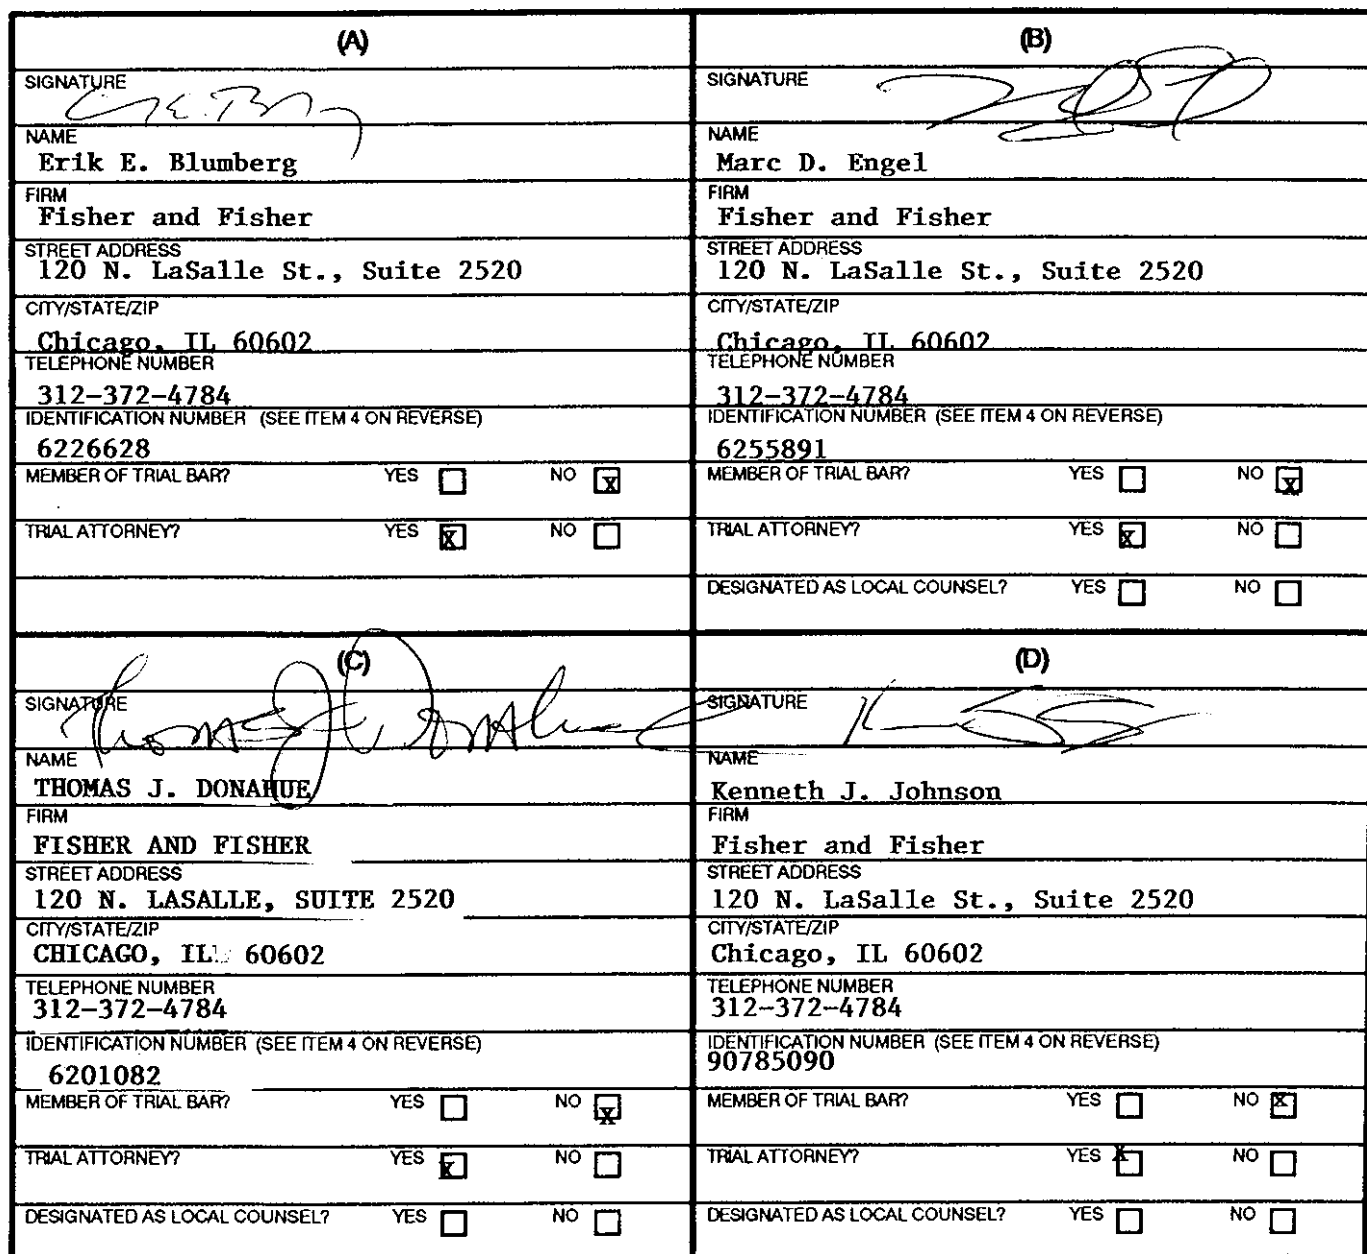 (A)
SIGNATURE
NAME
Erik E. Blumberg
FIRM
Fisher and Fisher
STREET ADDRESS
120 N. LaSalle St., Suite 2520
CITY/STATE/ZIP
Chicago, IL 60602
TELEPHONE NUMBER
312-372-4784
IDENTIFICATION NUMBER (SEE ITEM 4 ON REVERSE)
6226628
MEMBER OF TRIAL BAR? YES NO X
TRIAL ATTORNEY? YES X NO
(B)
SIGNATURE
NAME
Marc D. Engel
FIRM
Fisher and Fisher
STREET ADDRESS
120 N. LaSalle St., Suite 2520
CITY/STATE/ZIP
Chicago, IL 60602
TELEPHONE NUMBER
312-372-4784
IDENTIFICATION NUMBER (SEE ITEM 4 ON REVERSE)
6255891
MEMBER OF TRIAL BAR? YES NO X
TRIAL ATTORNEY? YES X NO
DESIGNATED AS LOCAL COUNSEL? YES NO
(C)
SIGNATURE Thomas J. Donahue
NAME
THOMAS J. DONAHUE
FIRM
FISHER AND FISHER
STREET ADDRESS
120 N. LASALLE, SUITE 2520
CITY/STATE/ZIP
CHICAGO, IL 60602
TELEPHONE NUMBER
312-372-4784
IDENTIFICATION NUMBER (SEE ITEM 4 ON REVERSE)
6201082
MEMBER OF TRIAL BAR? YES NO X
TRIAL ATTORNEY? YES X NO
DESIGNATED AS LOCAL COUNSEL? YES NO
(D)
SIGNATURE
NAME
Kenneth J. Johnson
FIRM
Fisher and Fisher
STREET ADDRESS
120 N. LaSalle St., Suite 2520
CITY/STATE/ZIP
Chicago, IL 60602
TELEPHONE NUMBER
312-372-4784
IDENTIFICATION NUMBER (SEE ITEM 4 ON REVERSE)
90785090
MEMBER OF TRIAL BAR? YES NO X
TRIAL ATTORNEY? YES X NO
DESIGNATED AS LOCAL COUNSEL? YES NO